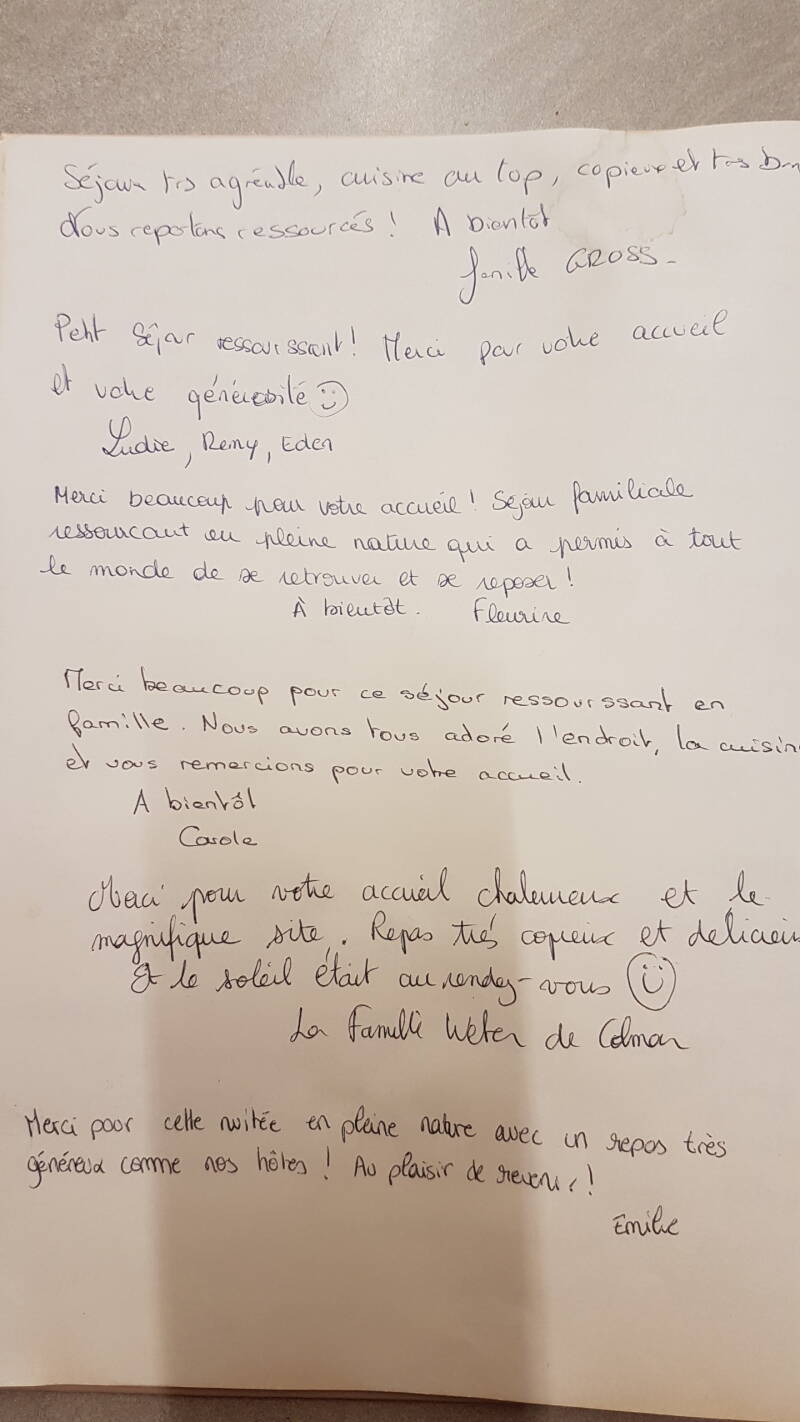 Séjour trs agréable, cuisine au top, copieux et très bon
Nous repartons ressourcés ! A bientôt
famille GROSS-
Petit séjour ressourssant ! Merci pour votre accueil
et votre générosité ☺
Ludie, Remy, Eden
Merci beaucoup pour votre accueil ! Séjour familiale
ressourcant en pleine nature qui a permis à tout
le monde de se retrouver et se reposer !
À bientôt. Fleurine
Merci beaucoup pour ce séjour ressourssant en
famille. Nous avons tous adoré l'endroit, la cuisin
et vous remercions pour votre accueil.
A bientôt
Carole
Merci pour votre accueil chaleureux et le
magnifique site. Repas très copieux et delicieu
Et le soleil était au rendez-vous ☺
La Famille Weber de Colmar
Merci pour cette nuitée en pleine nature avec un repas très
généreux comme nos hôtes ! Au plaisir de revenir !
Emilie